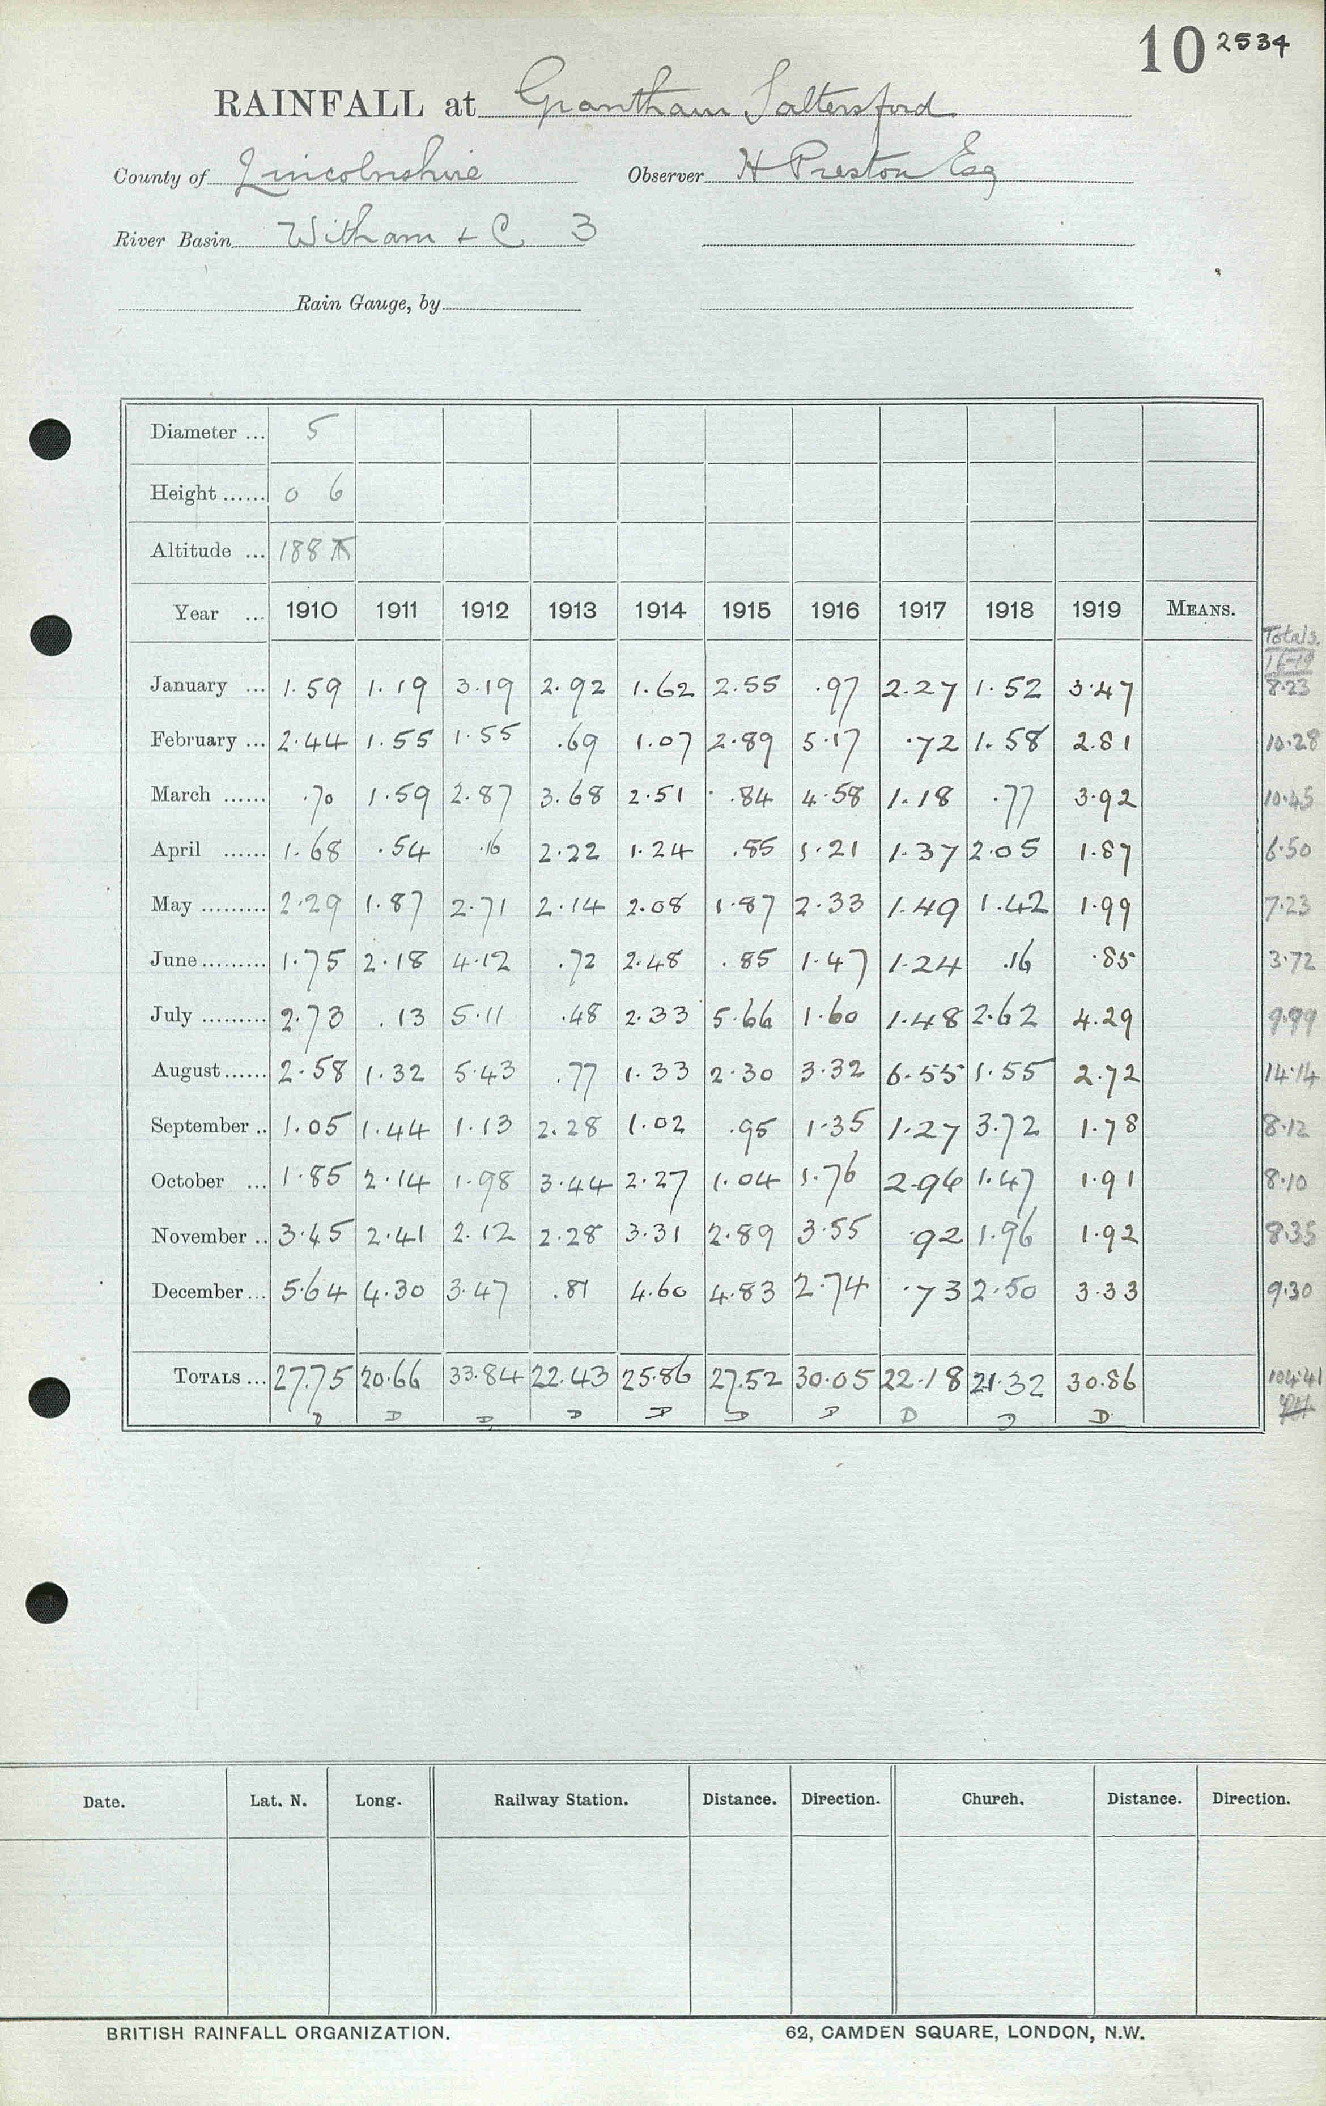 10 2534
RAINFALL at Grantham Saltersford
County of Lincolnshire Observer H Preston Esq
River Basin Witham + C 3
Rain Gauge, by
Diameter ... 5
Height ...... 0 6
Altitude ... 188
Year ... 1910 1911 1912 1913 1914 1915 1916 1917 1918 1919 MEANS.
Totals.
16-19
January ... 1.59 1.19 3.19 2.92 1.62 2.55 .97 2.27 1.52 3.47 8.23
February ... 2.44 1.55 1.55 .69 1.07 2.89 5.17 .72 1.58 2.81 10.28
March ...... .70 1.59 2.87 3.68 2.51 .84 4.58 1.18 .77 3.92 10.45
April ...... 1.68 .54 .16 2.22 1.24 .85 1.21 1.37 2.05 1.87 6.50
May ......... 2.29 1.87 2.71 2.14 2.08 1.87 2.33 1.49 1.42 1.99 7.23
June ......... 1.75 2.18 4.12 .72 2.48 .85 1.47 1.24 .16 .85 3.72
July ......... 2.73 .13 5.11 .48 2.33 5.66 1.60 1.48 2.62 4.29 9.99
August ...... 2.58 1.32 5.43 .77 1.33 2.30 3.32 6.55 1.55 2.72 14.14
September .. 1.05 1.44 1.13 2.28 1.02 .95 1.35 1.27 3.72 1.78 8.12
October ... 1.85 2.14 1.98 3.44 2.27 1.04 1.76 2.96 1.47 1.91 8.10
November .. 3.45 2.41 2.12 2.28 3.31 2.89 3.55 .92 1.96 1.92 8.35
December ... 5.64 4.30 3.47 .81 4.60 4.83 2.74 .73 2.50 3.33 9.30
TOTALS ... 27.75 20.66 33.84 22.43 25.86 27.52 30.05 22.18 21.32 30.86 104.41
D D D D D D D D D D
Date. Lat. N. Long. Railway Station. Distance. Direction. Church. Distance. Direction.
BRITISH RAINFALL ORGANIZATION. 62, CAMDEN SQUARE, LONDON, N.W.